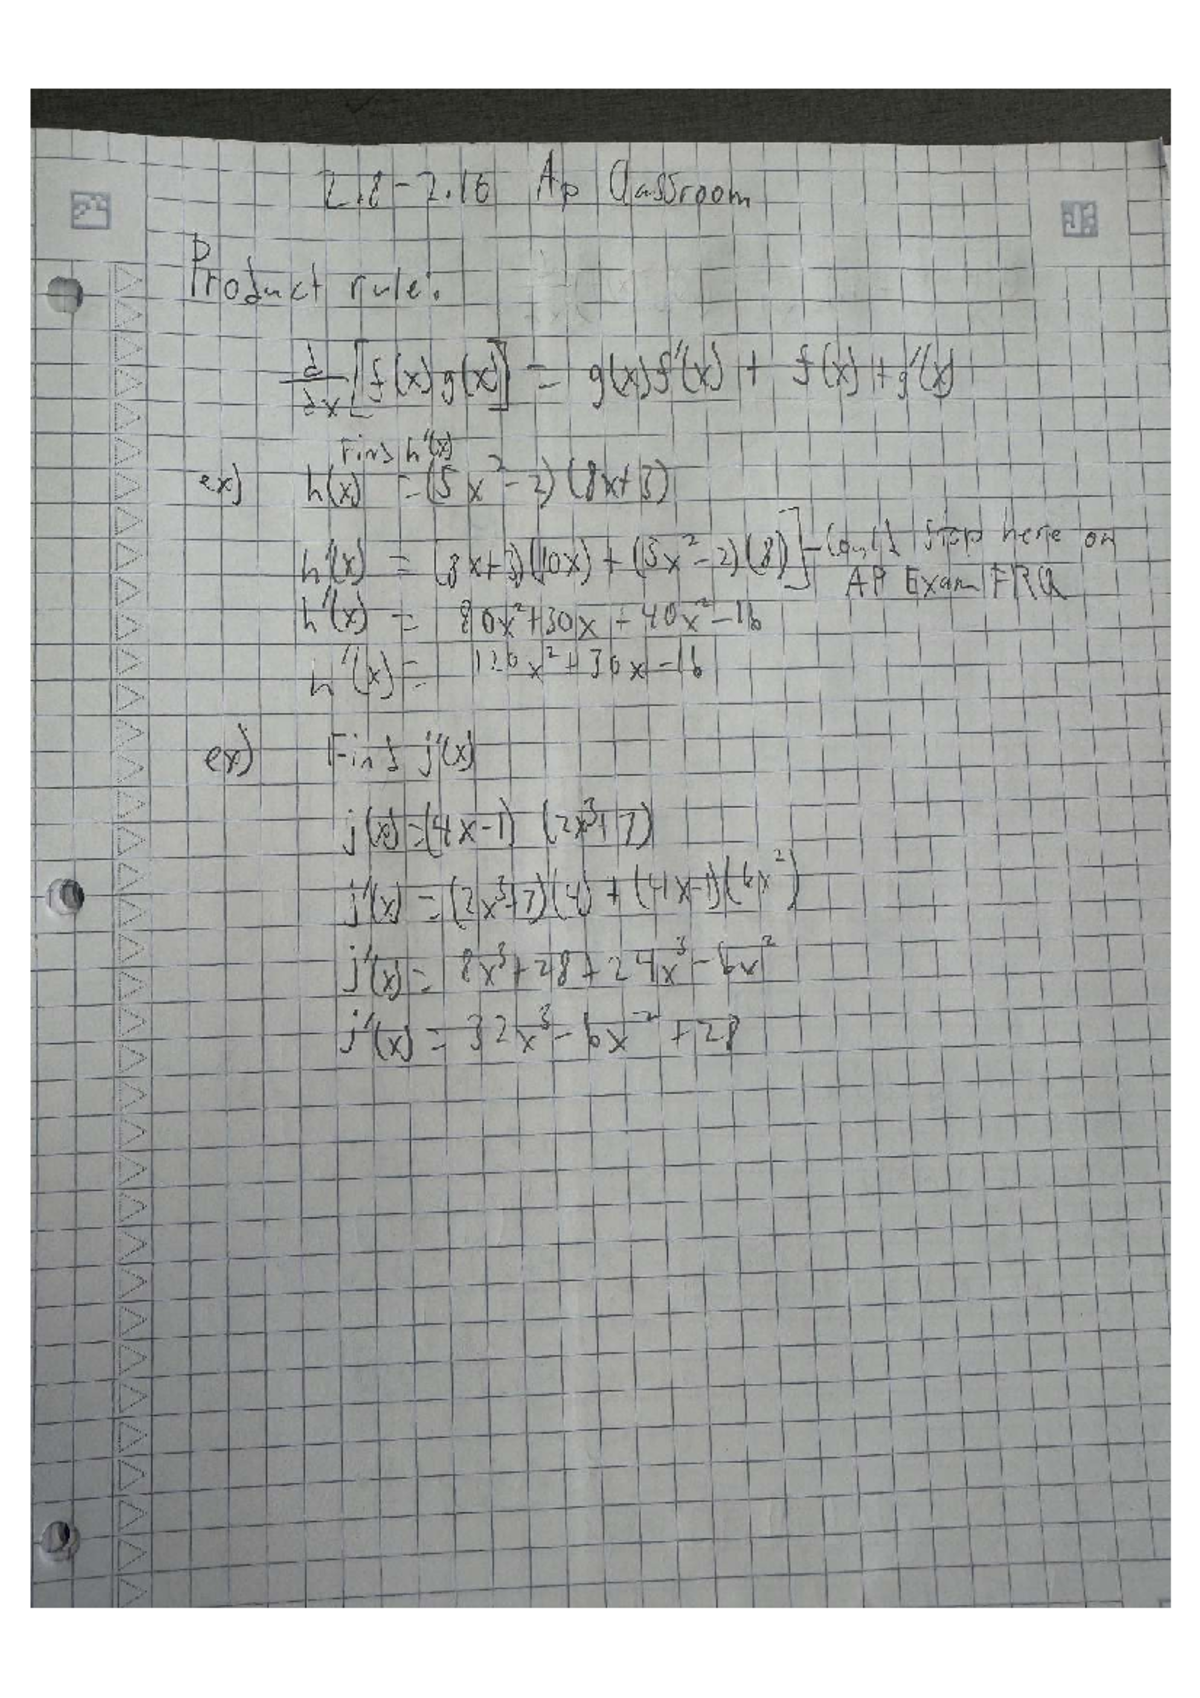 2.8-2.10 Ap Classroom
Product rule:
d/dx [f(x)g(x)] = g(x)f'(x) + f(x)+g'(x)
Find h'(x)
ex) h(x) = (5x²-2)(8x+3)
h'(x) = (8x+3)(10x)+(5x²-2)(8)] - Could stop here on
AP Exam FRQ
h'(x) = 80x²+30x+40x²-16
h'(x) = 120x²+30x-16
ex) Find j'(x)
j(x)=(4x-1) (2x³+7)
j'(x) = (2x³+7)(4)+(4x-1)(6x²)
j'(x) = 8x³+28+24x³-6x²
j'(x) = 32x³-6x²+28